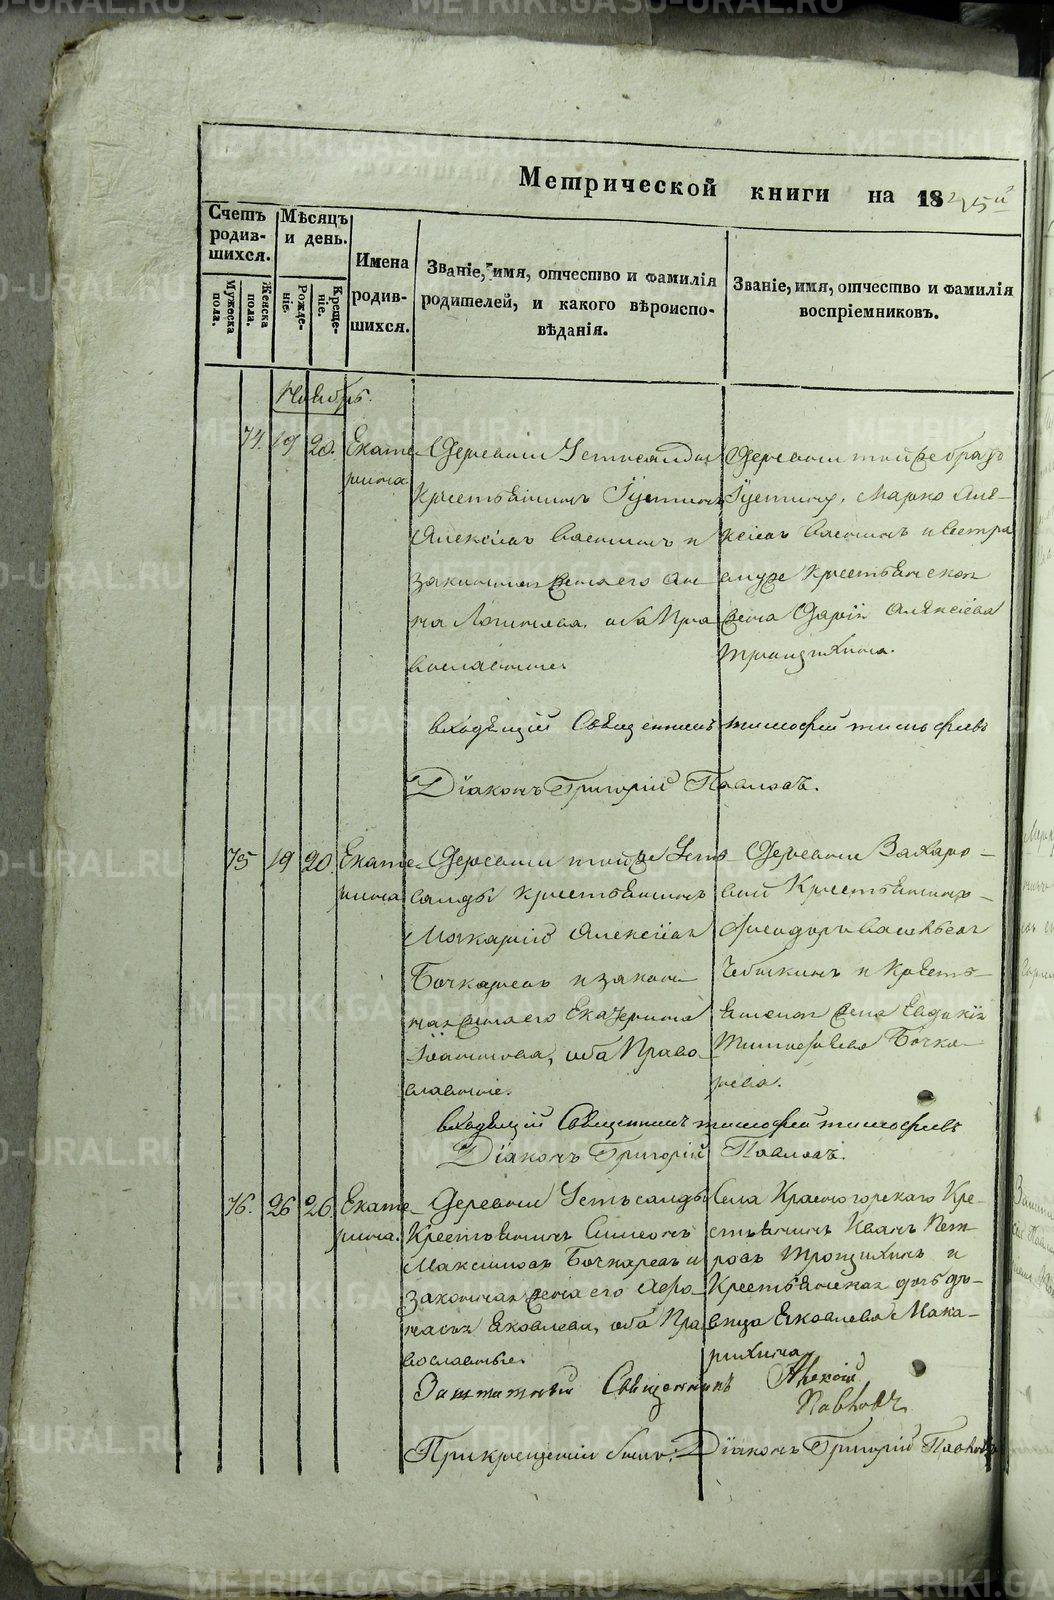 METRIKI.GASO-URAL.RU
Метрической книги на 18
Счетъ родив- шихся.
Мужеска пола.
Женска пола.
Мѣсяцъ и день.
Рожде- ніе.
Креще- ніе.
Имена родив- шихся.
Званіе, имя, отчество и фамилія
родителей, и какого вѣроиспо-
вѣданія.
Званіе, имя, отчество и фамилія
воспріемниковъ.
Ноябрь.
74. 19 20. Екате-
рина
Деревни
Крестьянинъ Іустинъ
Алексіевъ и
законная жена его Ан
на Логинова, оба Пра
вославные.
Деревни тойже братъ
Іустину, Марко Але-
ксіевъ и сестра
ему же крестьянская
жена Дарія Алексіева
Входящій Священникъ Тимофей Тимофеевъ
Діаконъ Григорій Павловъ.
75 19 20. Екате-
рина
Деревни тойже Усть-
салды крестьянинъ
Макарій Алексіевъ
Бочкаревъ и закон-
ная жена его Екатерина
Іоаннова, оба Право-
славные.
Деревни Захаро-
вой Крестьянинъ
Феодоръ Васильевъ
и Кресть-
янская жена Евдокія
Тимофеева Бочка-
рева.
Входящій Священникъ Тимофей Тимофеевъ
Діаконъ Григорій Павловъ.
76. 26 26 Екате-
рина.
Деревни Устьсалды
Крестьянинъ Симеонъ
Максимовъ Бочкаревъ и
законная жена его Афо-
насья Яковлева, оба Пра
вославные.
Села Красногорскаго Кре-
стьянинъ Иванъ Пет
ровъ и
Крестьянская дочь дѣ-
вица Яковлева Мака-
рихина
Заштатный Священникъ Алексій
Павловъ
При крещеніи былъ: Діаконъ Григорій Павловъ